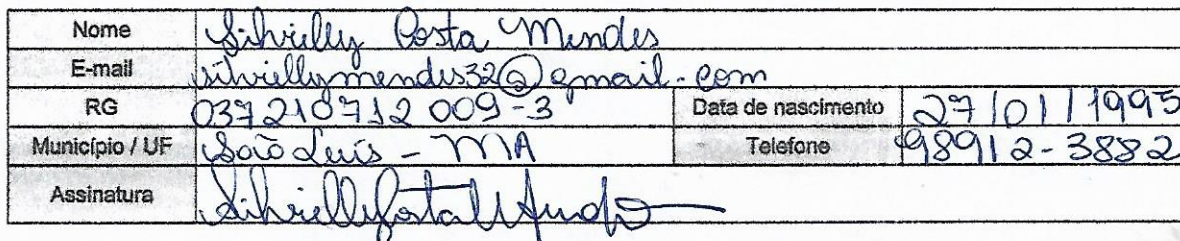 Nome Silvielly Costa Mendes
E-mail silviellymendes32@gmail.com
RG 037210712009-3 Data de nascimento 27/01/1995
Município / UF São Luís - MA Telefone 98912-3882
Assinatura Silvielly Costa Mendes